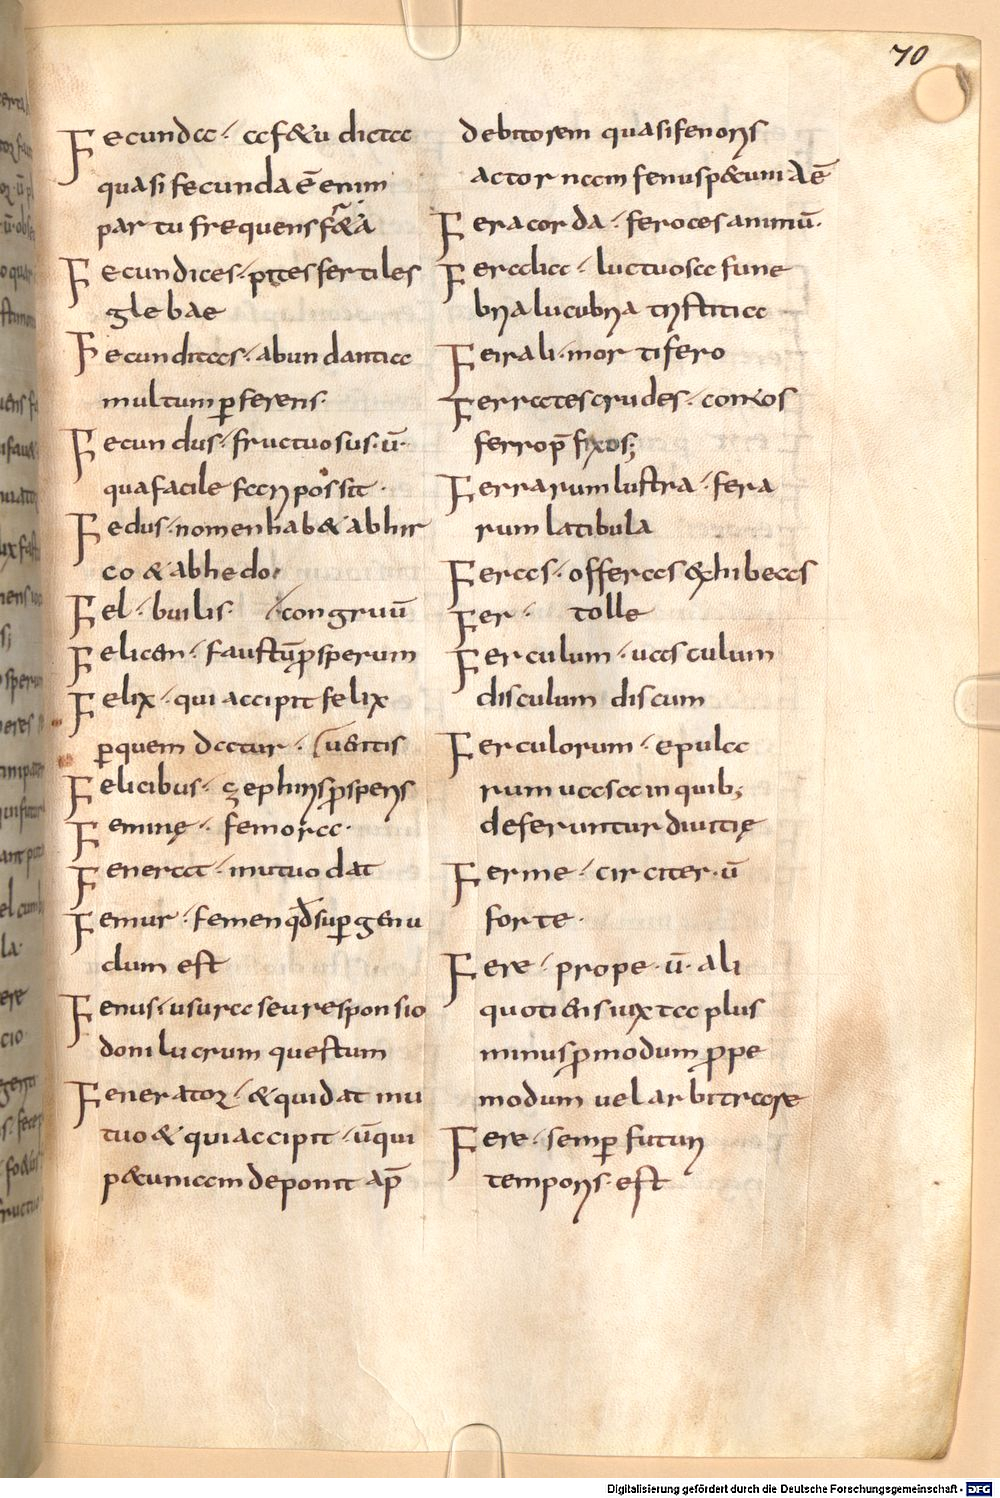 70
Fecunda · a f&u dicta
quasi fecunda ē enim
partu frequens f&a
Fecundices · pites fertiles
glebae
Fecunditas · abundantia
multum ꝑferens ·
Fecundus · fructuosus · ū ·
qua facile fari possit ·
Fedus · nomen hab& ab hir
co & ab hedo ·
Fel · builis · congruū
Felicem · faustū ꝓsperum
Felix · qui accipit felix
ꝑquem datur · uentis
Felicibus · zephiris ꝓsperis
Feminę · femora ·
Fenerat · mutuo dat
Femur · femen qđ suꝑ genu
dum est
Fenus · usura seu responsio
doni lucrum questum
Fenerator · & qui dat mu
tuo & qui accipit · ū qui
p&cuniam deponit ap̄
debitorem quasi fenoris
actor nam fenus p&cunia ē
Feracorda · feroces animū ·
Feralia · luctuosa fune
bria lucubria tristitia
Feirali · mortifero
Ferratescrudes · contos
ferro p̄fixos;
Ferrarum lustra · fera
rum latibula
Feras · offeras exhibeas
Fer · tolle
Ferculum · uasculum
disculum discum
Ferculorum · epula
rum uasa in quib;
deferuntur diuitię
Ferme · circiter · ū
forte ·
Fere · prope · ū · ali
quotiens iuxta plus
minus ꝓmodum ꝓpe
modum uel arbitrare
Fere · semꝑ futuri
temporis · est
Digitalisierung gefördert durch die Deutsche Forschungsgemeinschaft - DFG